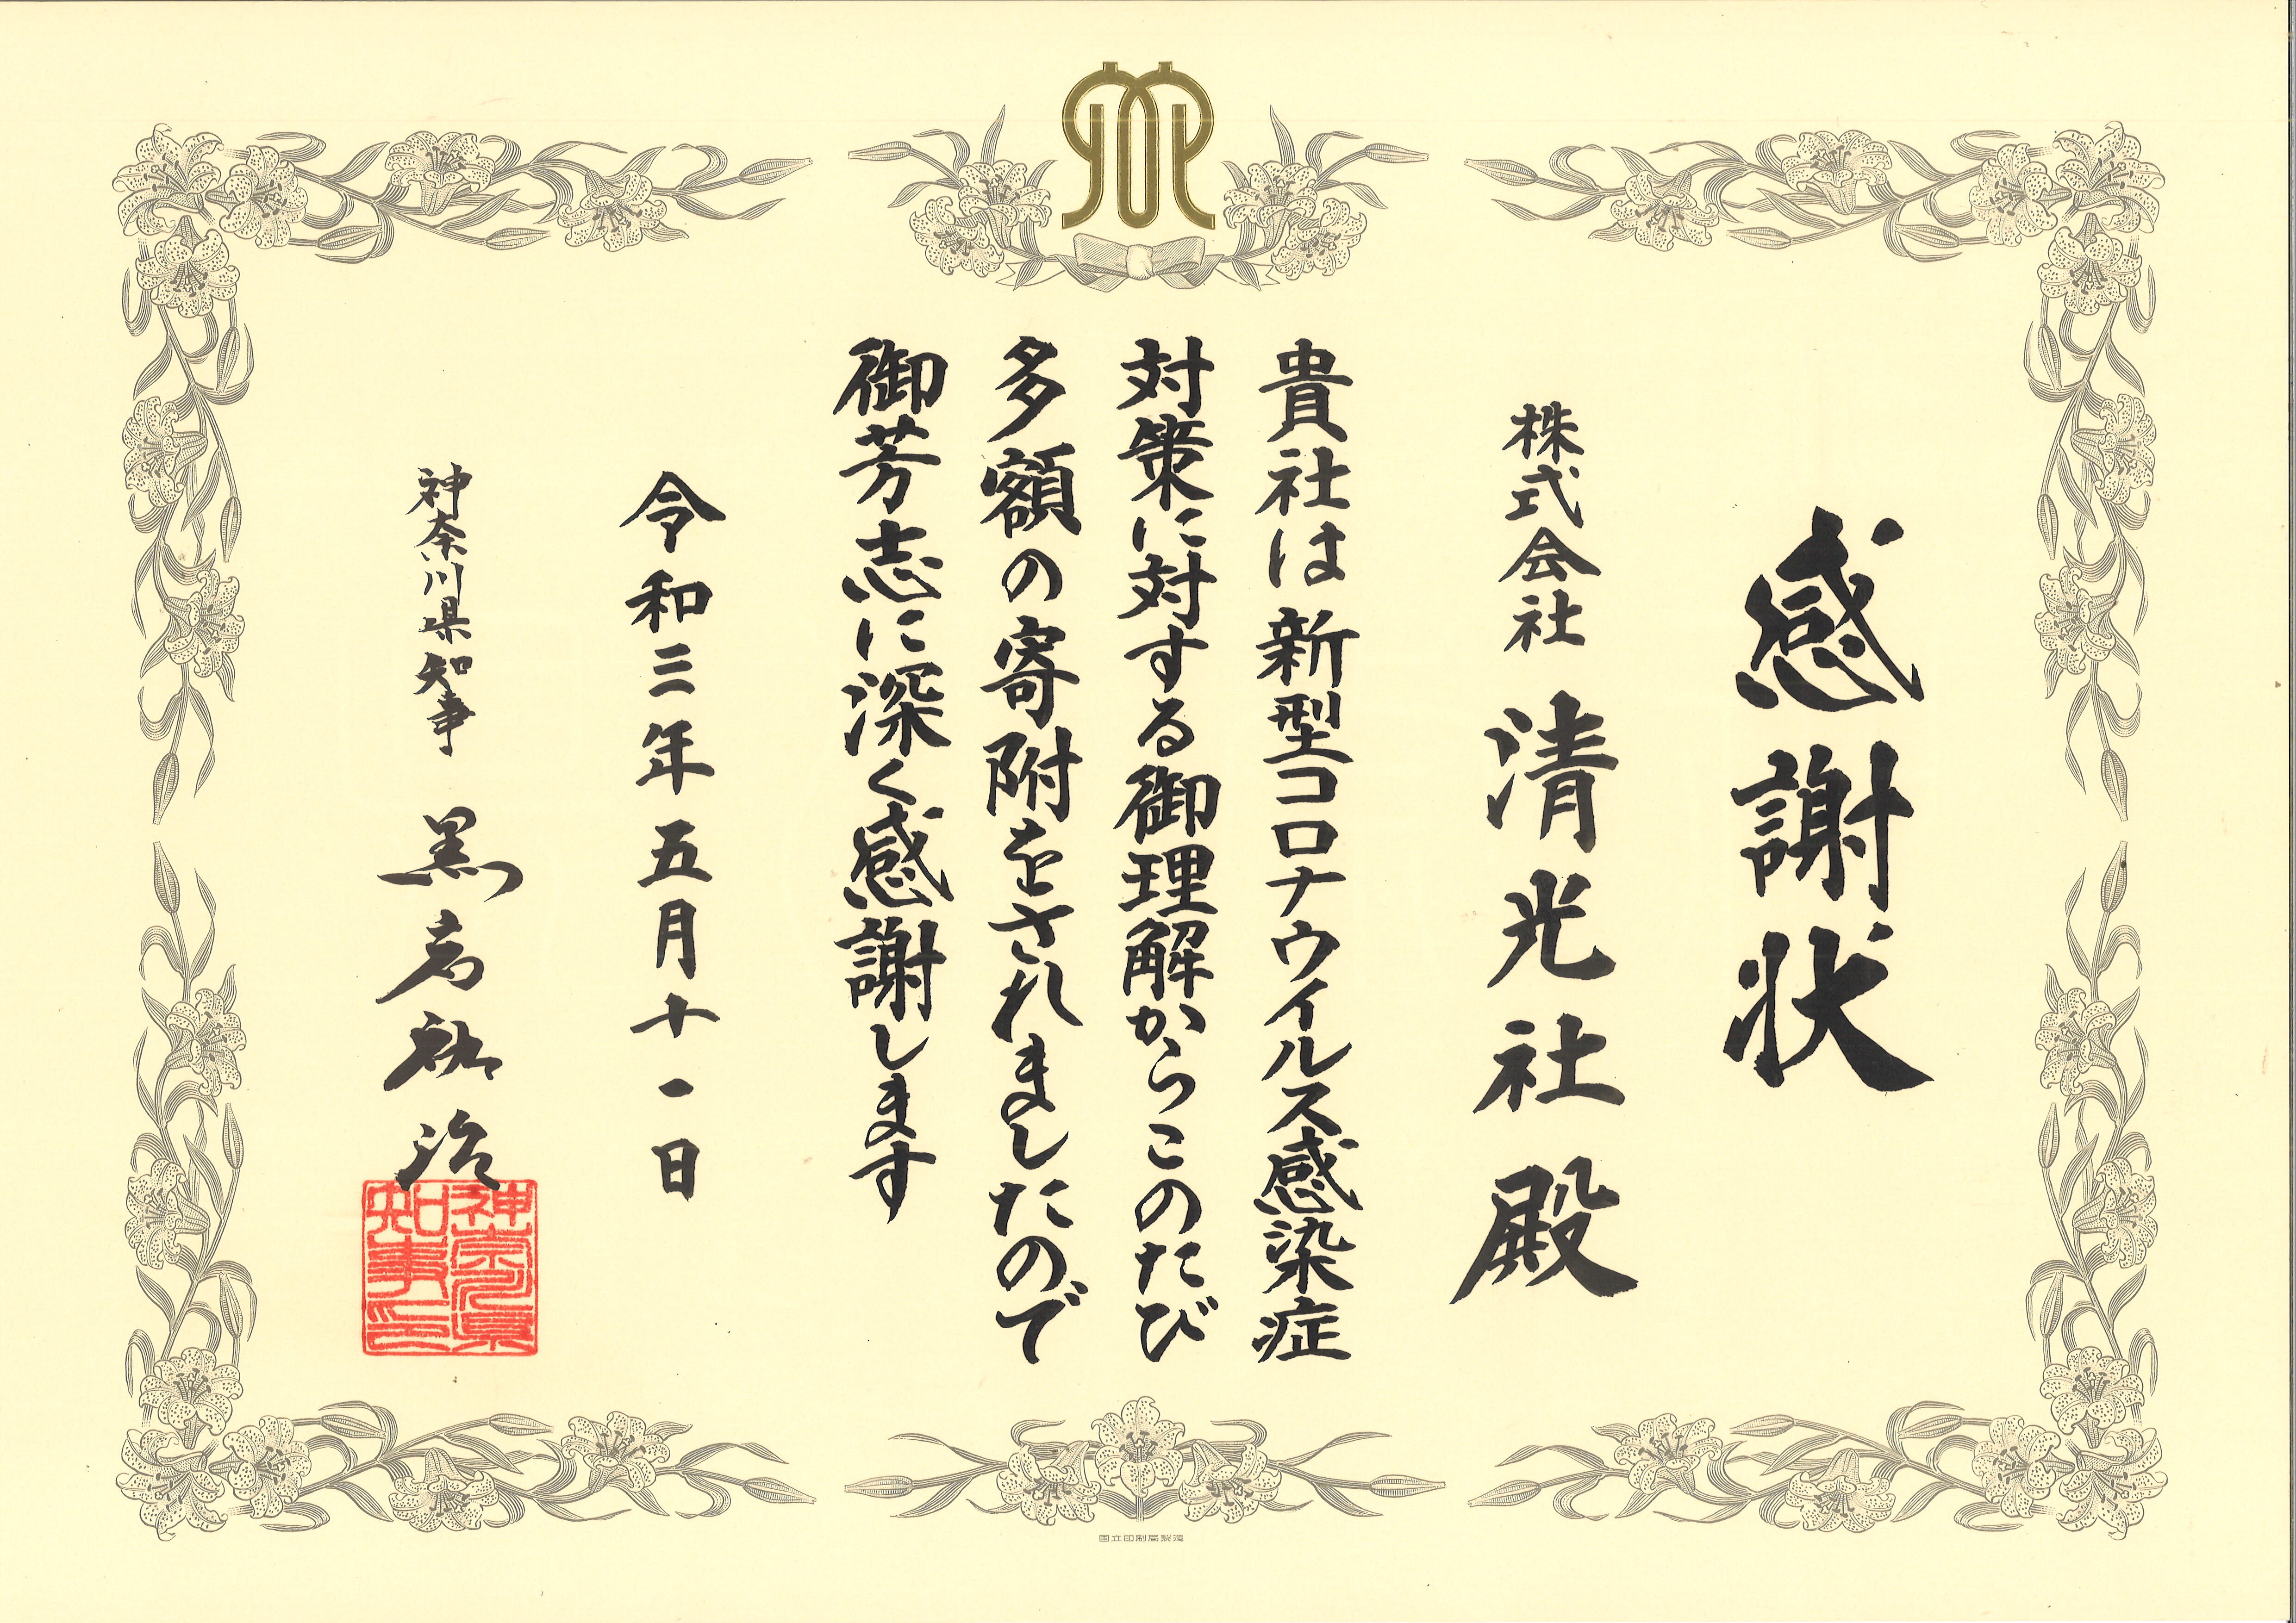 感謝状
株式会社 清光社 殿
貴社は新型コロナウイルス感染症
対策に対する御理解からこのたび
多額の寄附をされましたので
御芳志に深く感謝します
令和三年五月十一日
神奈川県知事 黒岩祐治
神奈川県
知事印
国立印刷局製造